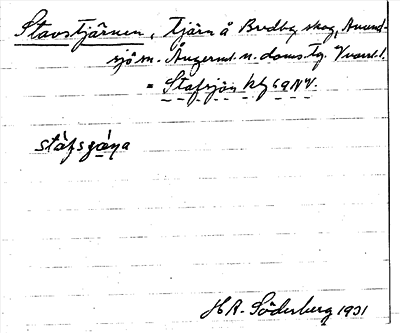 Stavstjärnen, tjärn å Bredby skog, Anund-
sjö sn. Ångerml. n. doms. tg. V
= Stafsjön kbl 69 NV.
HR. Söderberg 1931